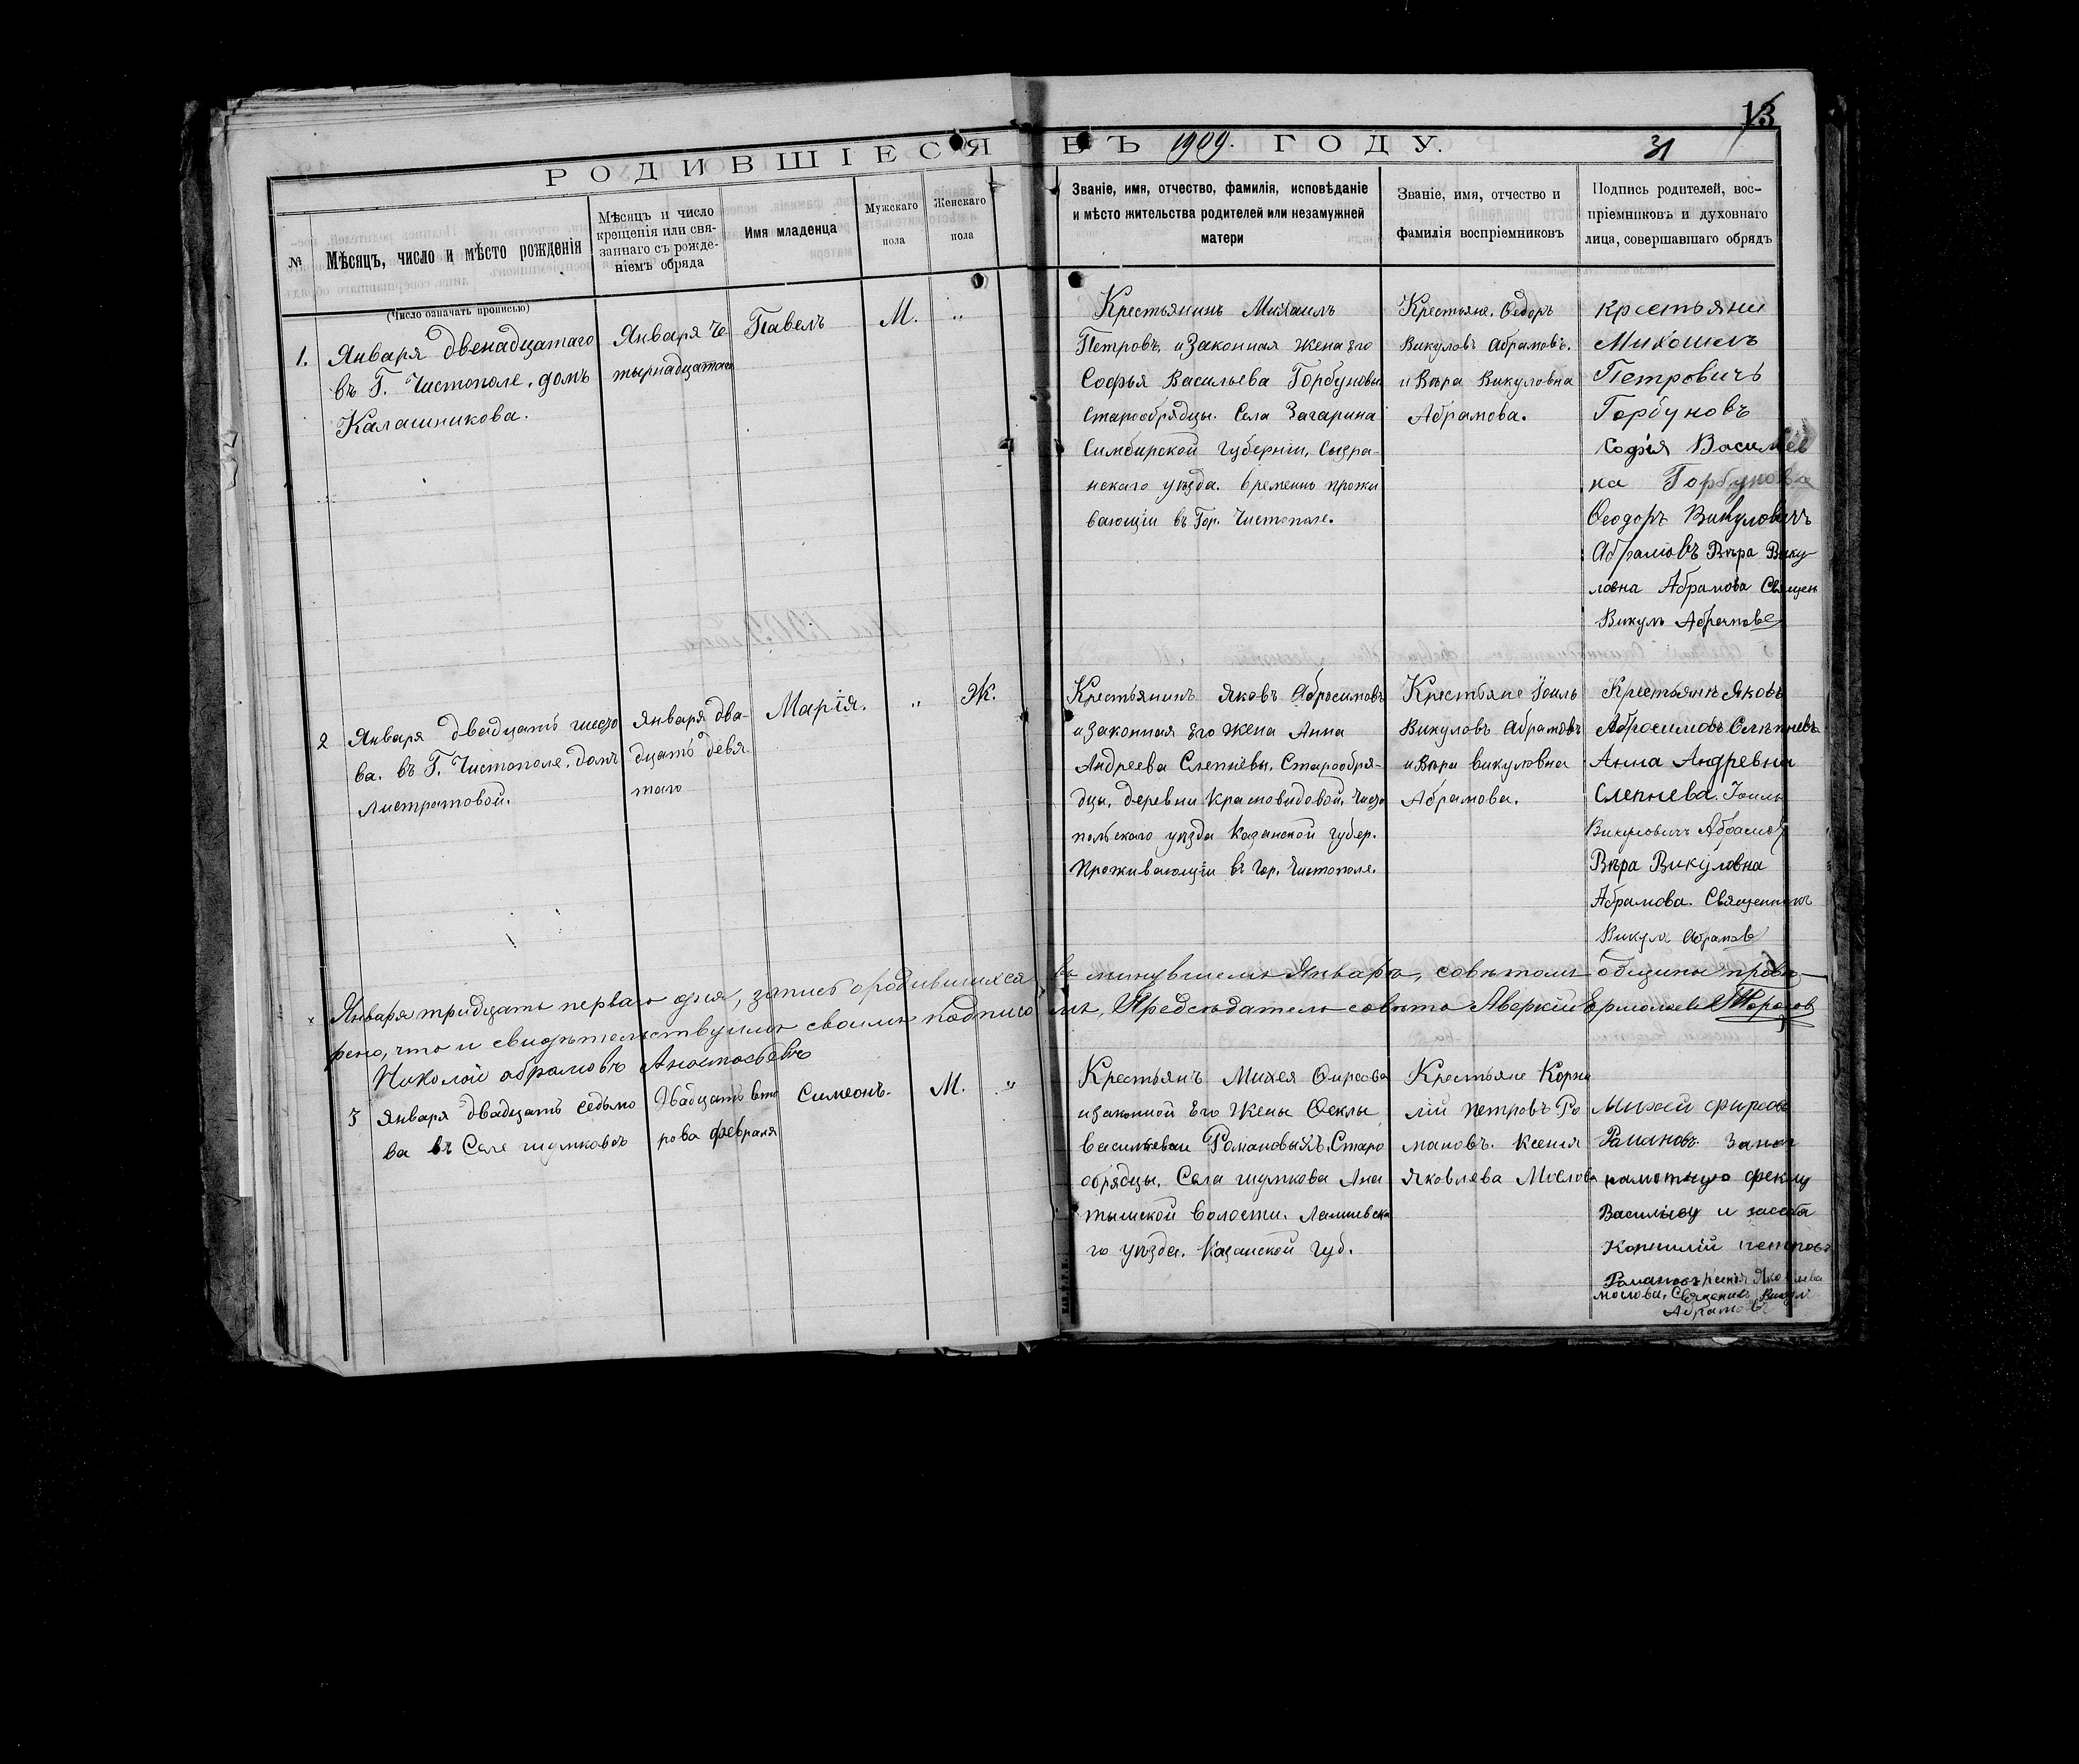 13
РОДИВШІЕСЯ ВЪ 1909. ГОДУ.
31
№
Мѣсяцъ, число и мѣсто рожденія
Мѣсяцъ и число
крещенія или свя-
заннаго съ рожде-
ніемъ обряда
Имя младенца
Мужскаго
пола
Женскаго
пола
Званіе, имя, отчество, фамилія, исповѣданіе
и мѣсто жительства родителей или незамужней
матери
Званіе, имя, отчество и
фамилія воспріемниковъ
Подпись родителей, вос-
пріемниковъ и духовнаго
лица, совершавшаго обрядъ
(Число означать прописью)
1.
Января двенадцатаго
въ Г. Чистополе, домъ
Калашникова.
Января че
тырнадцатаго
Павелъ
М.
„
Крестьянинъ Михаилъ
Петровъ, и Законная жена Его
Софья Васильева Горбуновы
Старообрядцы. Села Загарина
Симбирской Губерніи, Сызра-
нскаго уѣзда. Временно прожи
вающіи въ Гор. Чистополе.
Крестьяне. Ѳедоръ
Викуловъ Абрамовъ.
и Вѣра Викуловна
Абрамова.
крестьяни
Михаилъ
Петровичъ
Горбуновъ
Софія Василіев
на Горбунова
Ѳеодоръ Викуловичъ
Абрамовъ Вѣра Вику
ловна Абрамова Священ
Викулъ Абрамовъ
2
Января двадцать шесто
ва. въ Г. Чистополе. домъ
Листратовой.
Января два-
дцать девя
таго
Марія.
„
Ж.
Крестьянинъ Яковъ Абросимовъ
и Законная Его Жена Анна
Андреева Слепневы. Старообря-
дцы. деревни Красновидовой. Чисто
польскаго уѣзда Казанской губер.
Проживающіи въ Гор. Чистополе.
Крестьяне Іоиль
Викуловъ Абрамовъ
и Вѣра Викуловна
Абрамова.
Крестьянъ Яковъ
Абросимовъ Слѣпневъ
Анна Андревна
Слепнева. Іоиль
Викуловичъ Абрамов
Вѣра Викуловна
Абрамова. Священникъ
Викула Абрамов
Января тридцать перваго дня, запись о родившихся въ минувшемъ Январѣ, совѣтомъ общины провѣ-
рено, что и свидѣтельствуемъ своимъ подписомъ, Председатель совѣта Аверкій Ермолаев
Николай Абрамовъ
3
Января двадцать седьмо
ва въ Селе Шумкове
Двадцать вто
рова февраля
Симеонъ.
М.
„
Крестьянъ Михея Фирсова
и законной Его Жены Ѳеклы
Васильевыи Романовыхъ. Старо
обрядцы. Села Шумкова Ана
тышской Волости. Лаишевска
го уѣзда. Казанской Губ.
Крестьяне Корни
лій Петровъ Ро
мановъ. Ксения
Яковлева Маслова
Михей Фирсовъ
Романовъ За не
грамотную Феклу
Васильеву и за себя
Корнилій Петровъ
Романовъ Ксенія Яковлева
маслова. Священикъ Викулъ
Абрамовъ